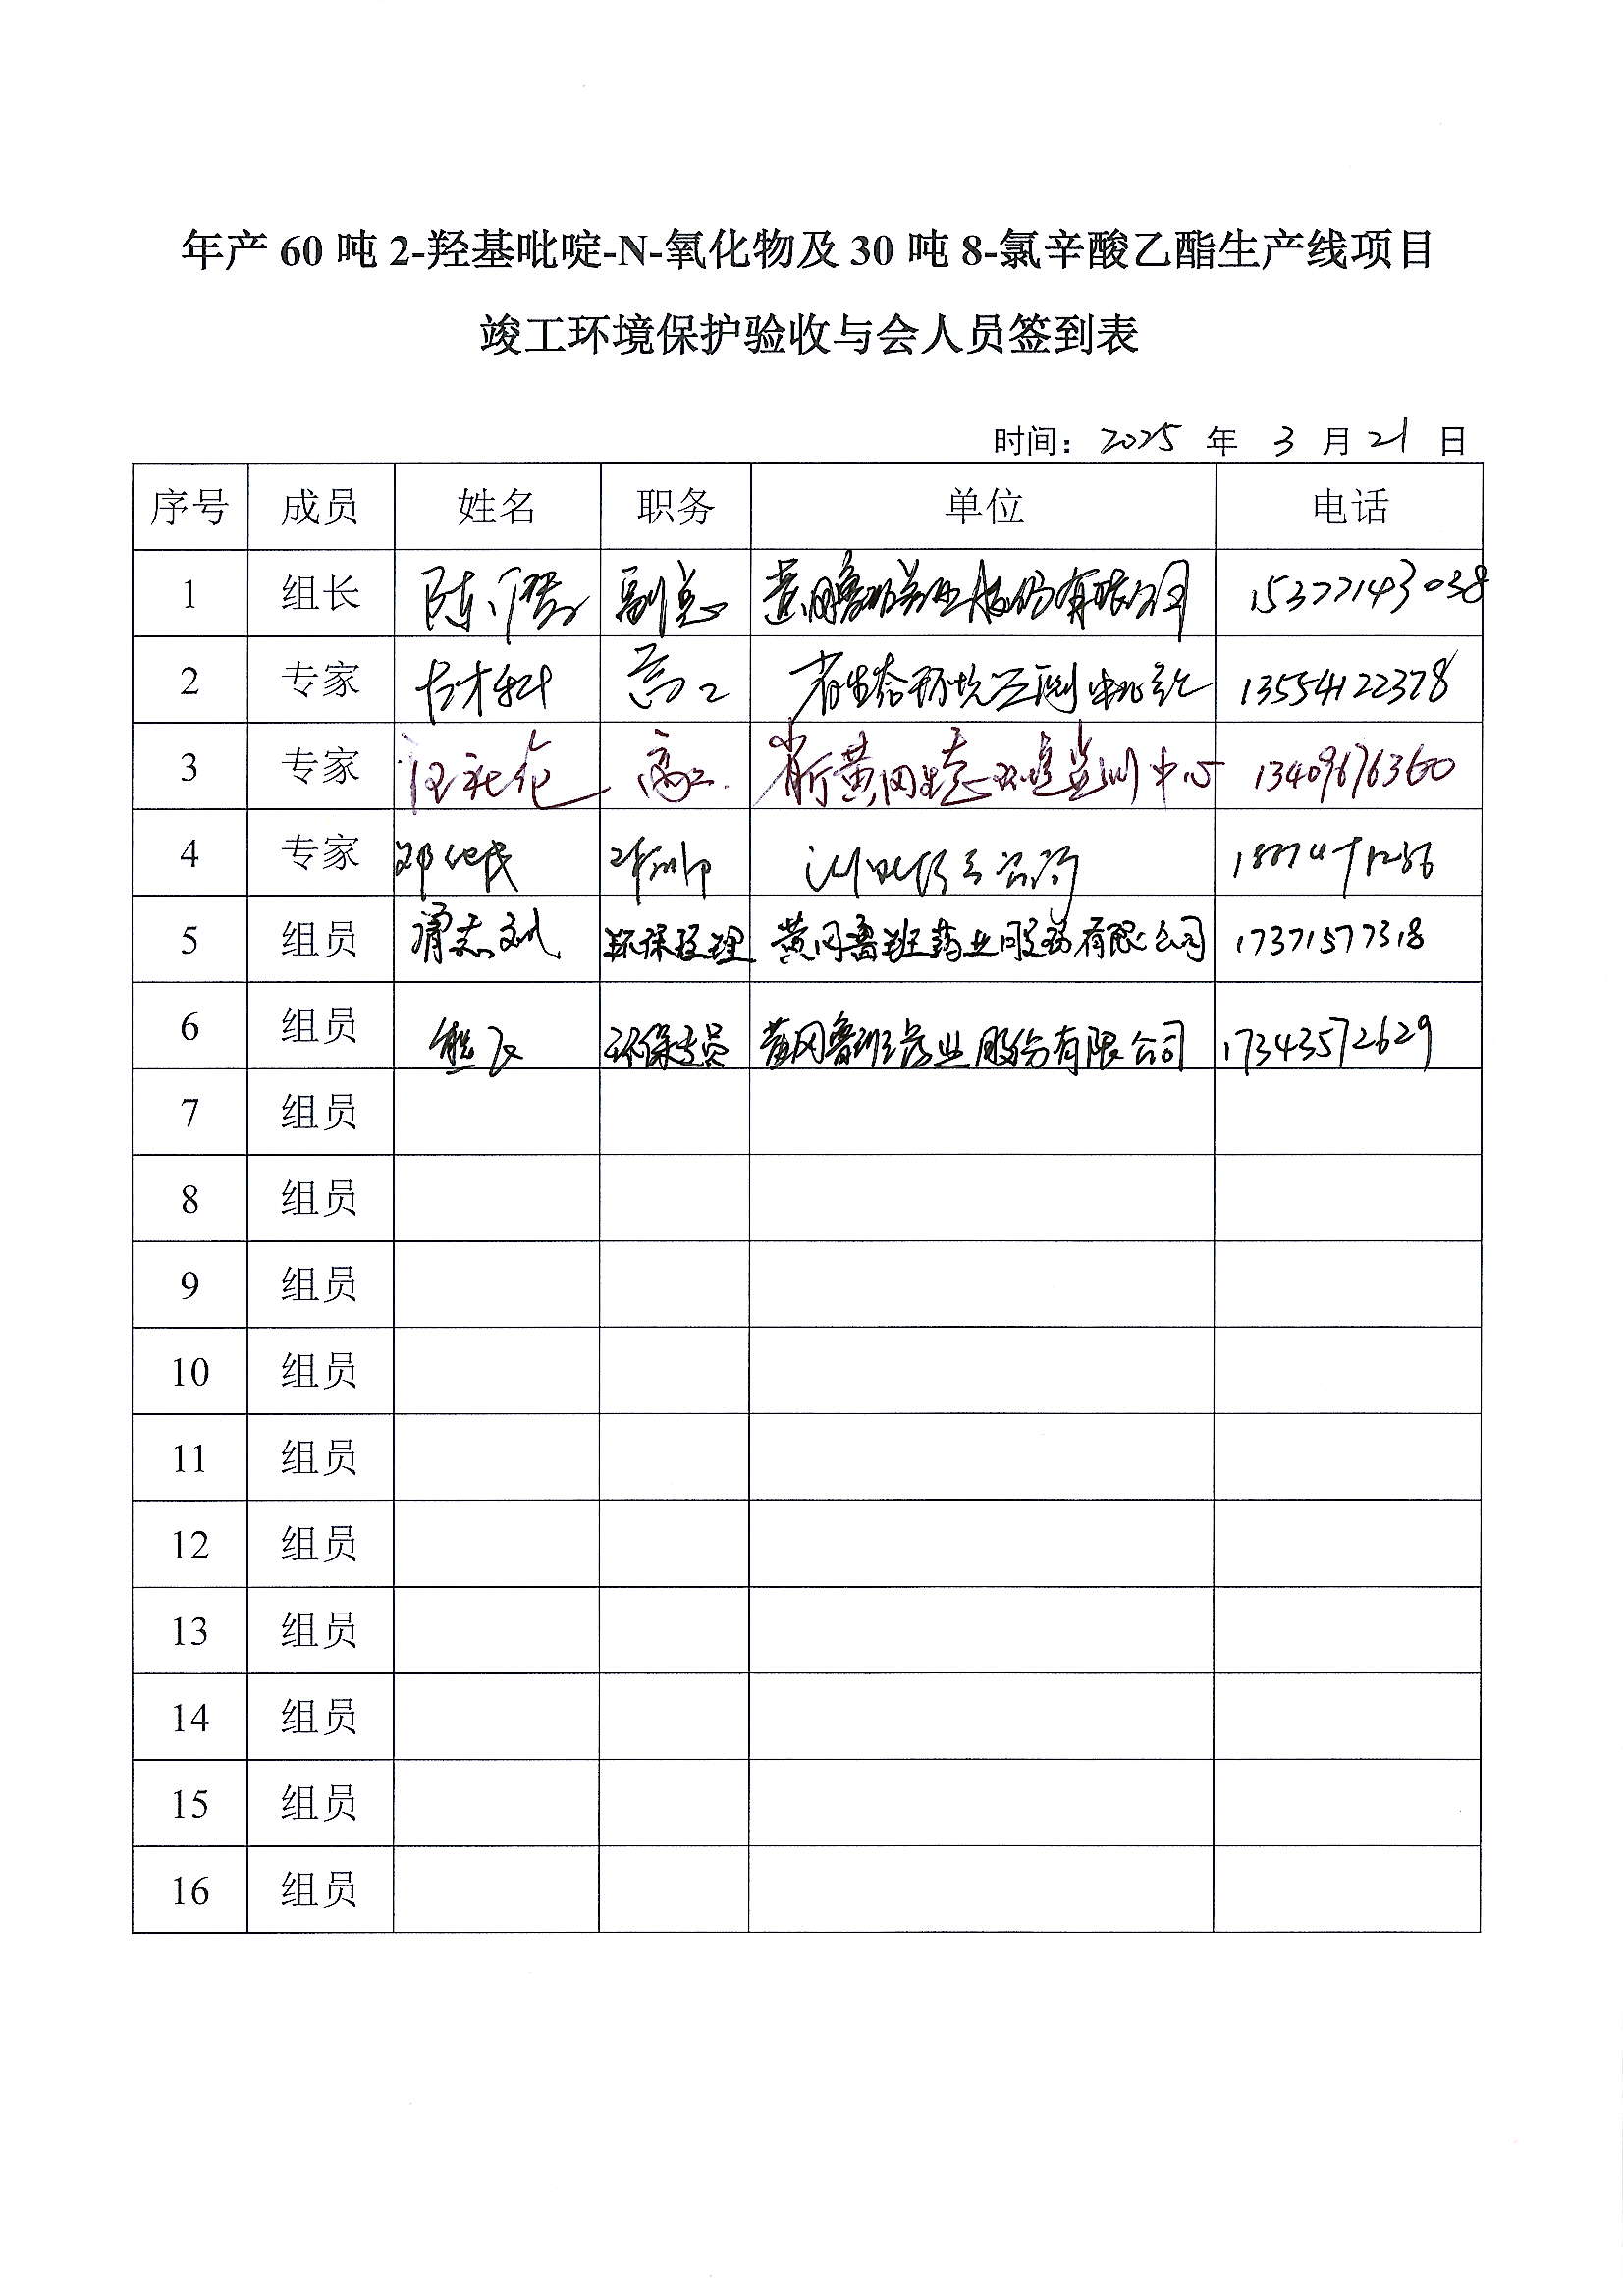 年产 60 吨 2-羟基吡啶-N-氧化物及 30 吨 8-氯辛酸乙酯生产线项目
竣工环境保护验收与会人员签到表
时间：2025 年 3 月 21 日
序号 成员 姓名 职务 单位 电话
1 组长 陈 副总 黄冈鲁班药业股份有限公司 15377143038
2 专家 高工 省生态环境监测中心站 13554122378
3 专家 汪社伦 高工. 省厅黄冈生态环境监测中心 13409676360
4 专家 邓
5 组员 环保经理 黄冈鲁班药业股份有限公司 17371577318
6 组员 熊飞 环保专员 黄冈鲁班药业股份有限公司 17343572629
7 组员
8 组员
9 组员
10 组员
11 组员
12 组员
13 组员
14 组员
15 组员
16 组员